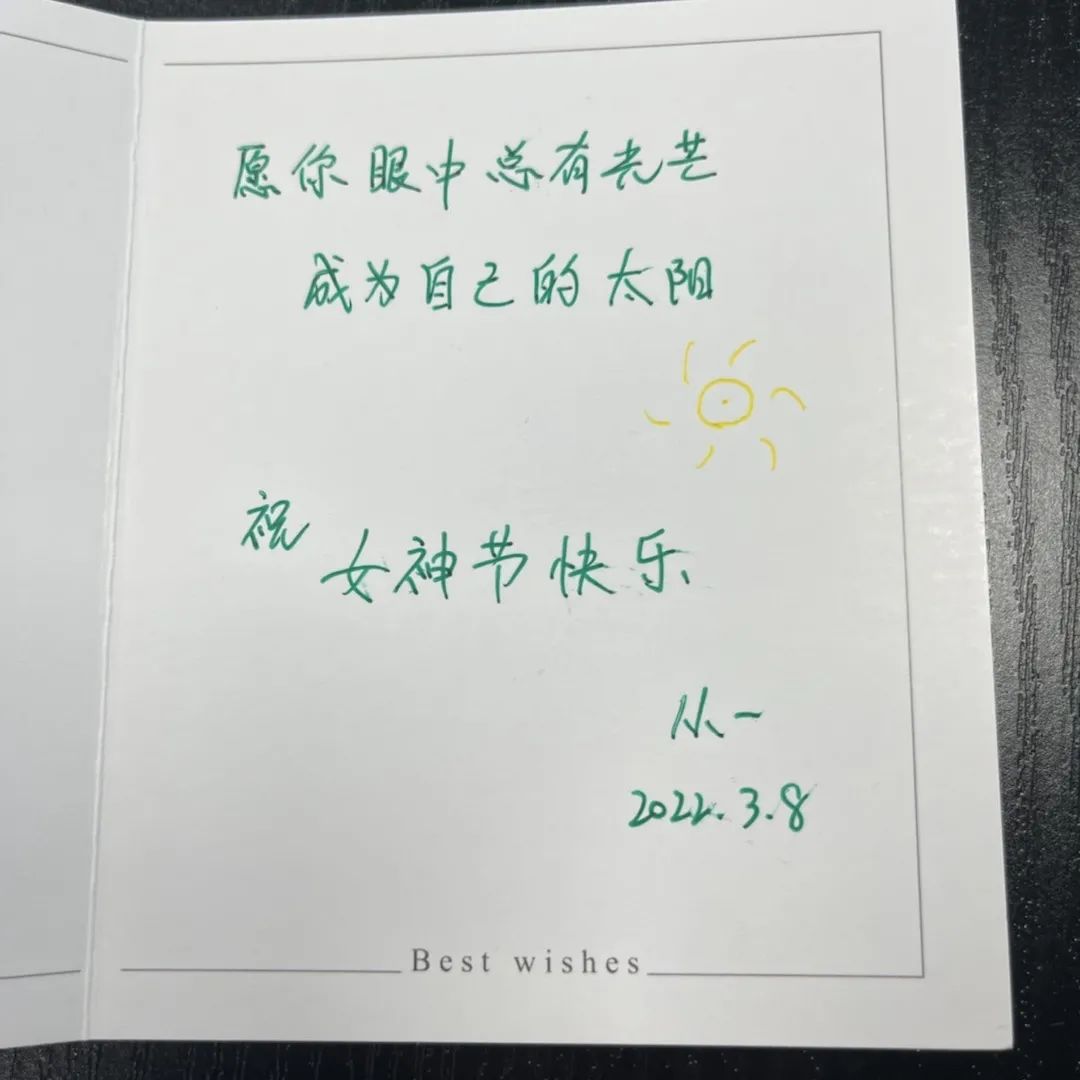 愿你眼中总有光芒
成为自己的太阳
祝
女神节快乐
从一
2022.3.8
Best wishes